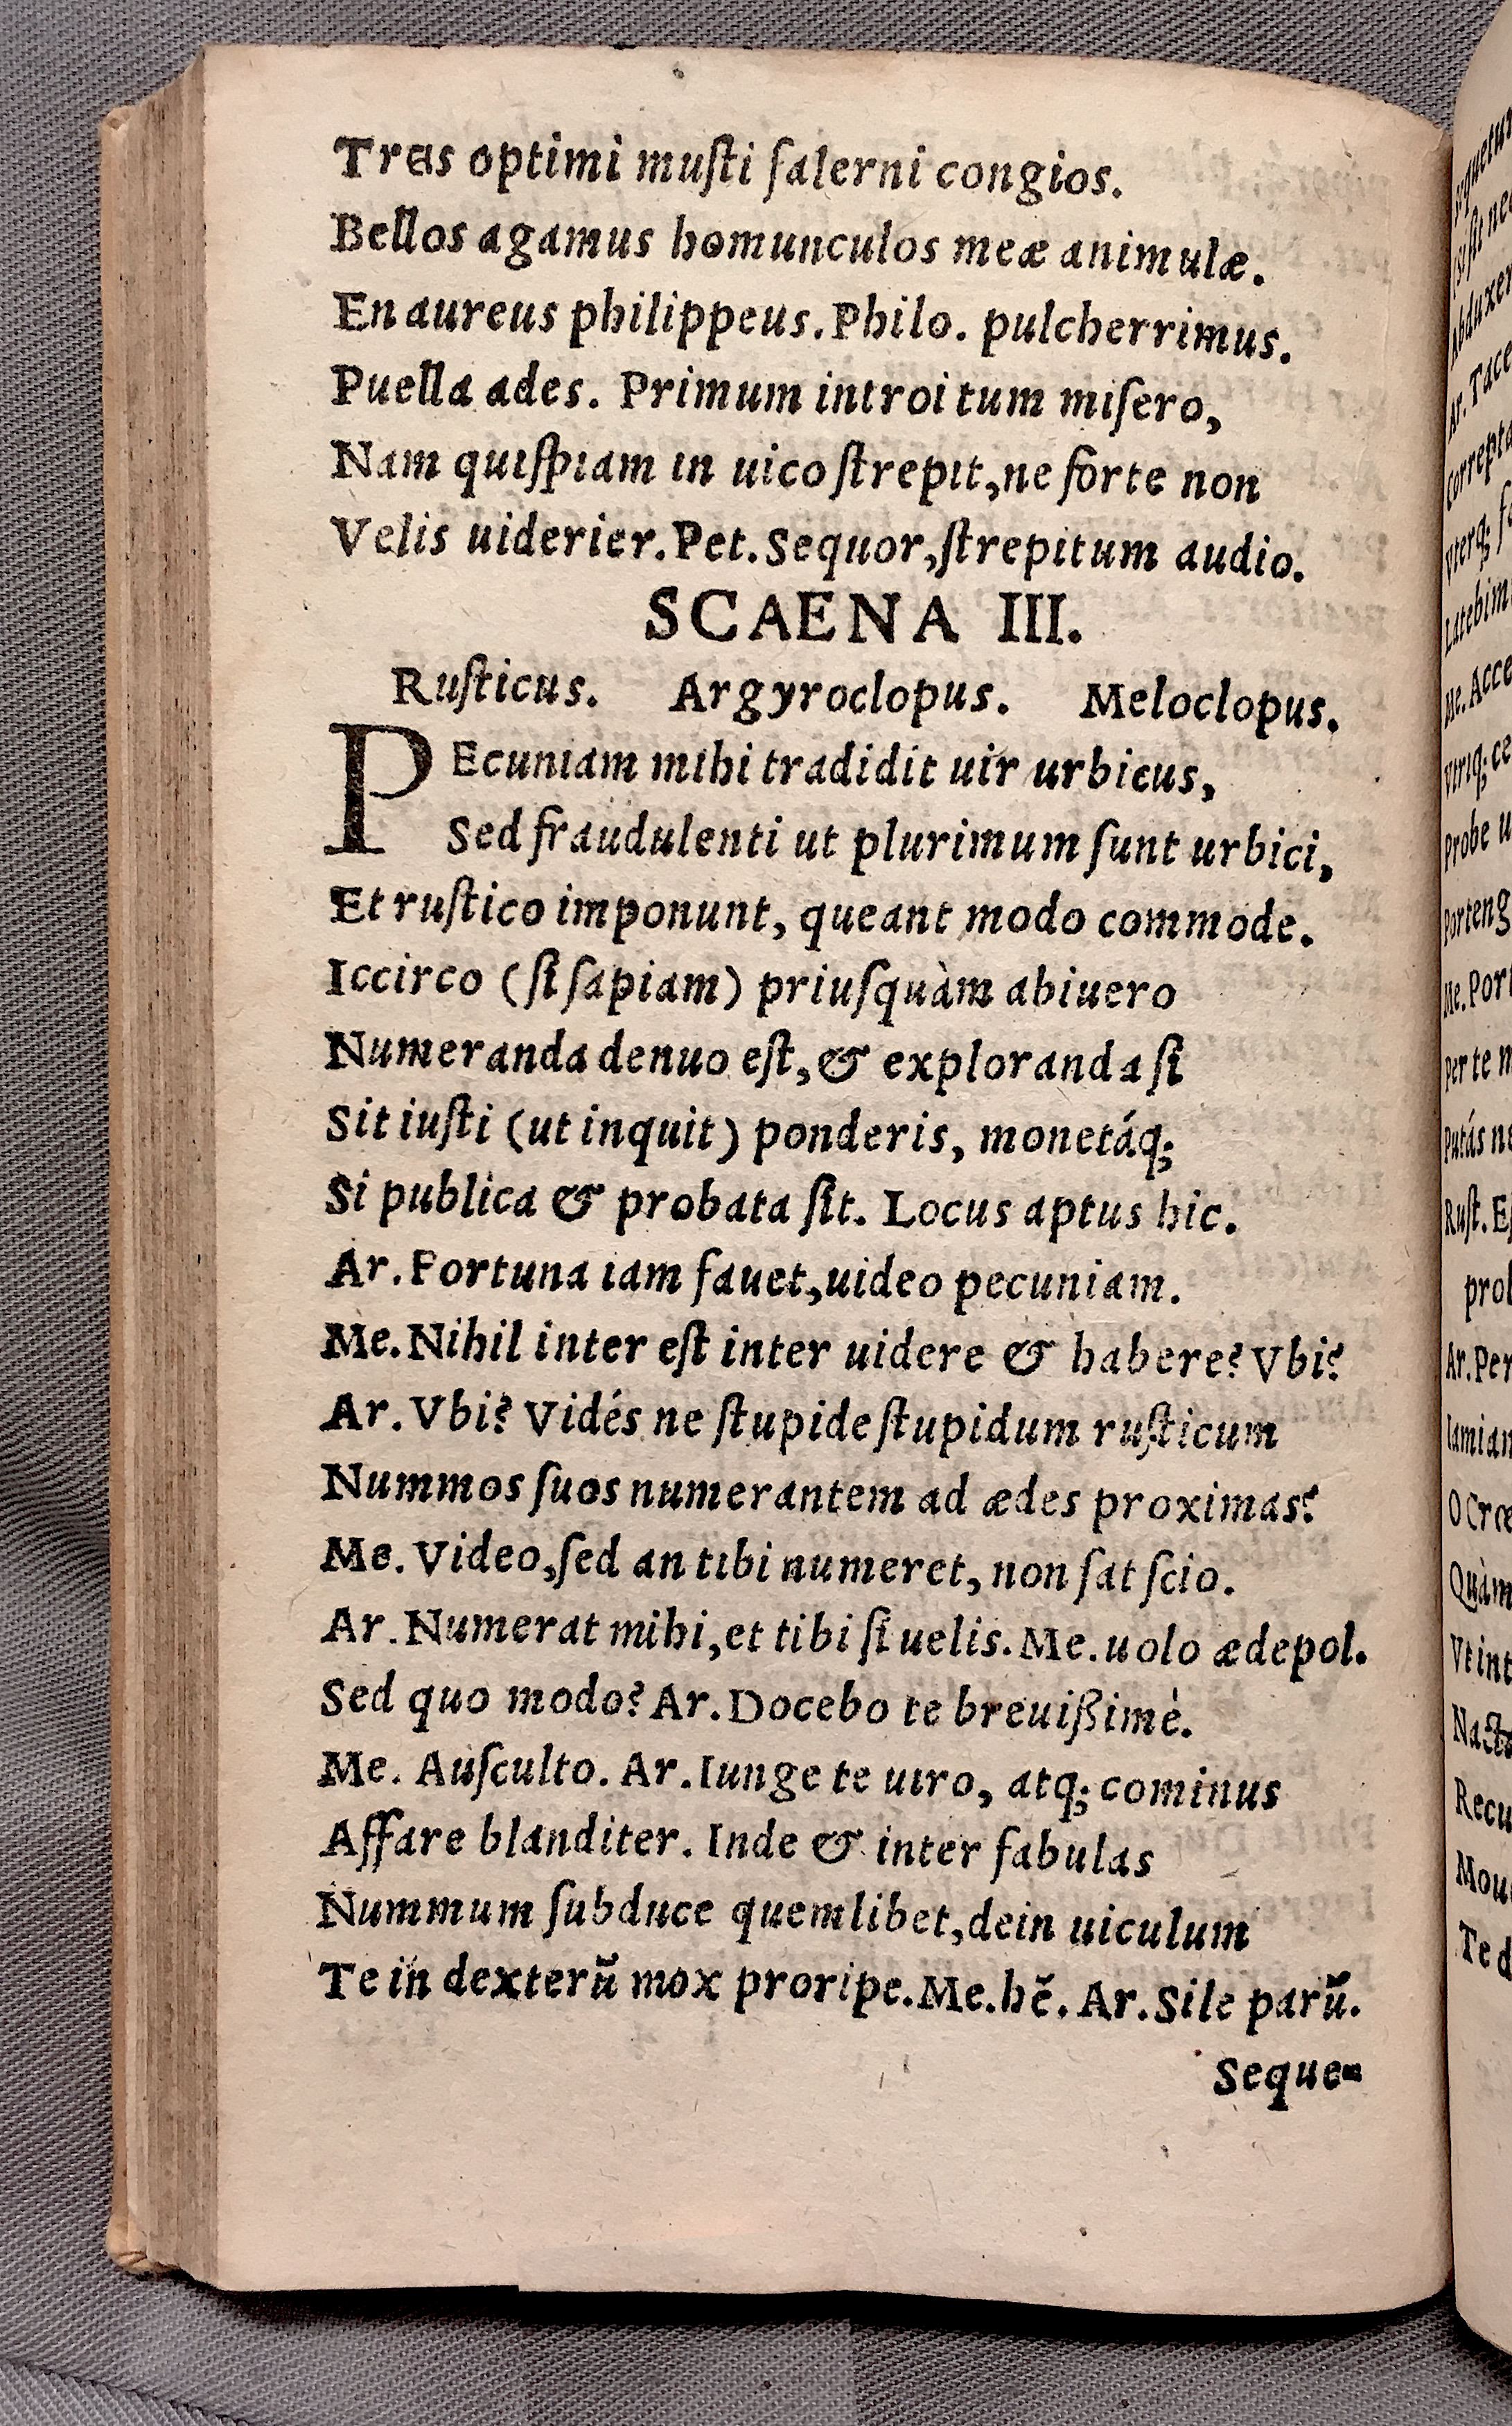 Treis optimi muſti falerni congios.
Bellos agamus homunculos meæ animulæ.
En aureus philippeus. Philo. pulcherrimus.
Puella ades. Primum introitum miſero,
Nam quiſpiam in uico ſtrepit, ne forte non
Velis uiderier. Pet. Sequor, ſtrepitum audio.
SCAENA III.
Ruſticus. Argyroclopus. Meloclopus.
PEcuniam mihi tradidit uir urbicus,
Sed fraudulenti ut plurimum ſunt urbici,
Et ruſtico imponunt, queant modo commode.
Iccirco (ſi ſapiam) priuſquàm abiuero
Numeranda denuo eſt, & exploranda ſi
Sit iuſti (ut inquit) ponderis, monetáq;
Si publica & probata ſit. Locus aptus hic.
Ar. Fortuna iam fauet, uideo pecuniam.
Me. Nihil inter eſt inter uidere & habere? Vbi?
Ar. Vbi? Vidés ne ſtupide ſtupidum ruſticum
Nummos ſuos numerantem ad ædes proximas?
Me. Video, ſed an tibi numeret, non ſat ſcio.
Ar. Numerat mihi, et tibi ſi uelis. Me. uolo ædepol.
Sed quo modo? Ar. Docebo te breuißimè.
Me. Auſculto. Ar. Iunge te uiro, atq; cominus
Affare blanditer. Inde & inter fabulas
Nummum ſubduce quemlibet, dein uiculum
Te in dexterũ mox proripe. Me. hẽ. Ar. Sile parũ.
Seque-
Ar. Tace
Me. Acce
Probe u
Per te
Putás
Ruſt.
Ar. Per
Quàm
Te